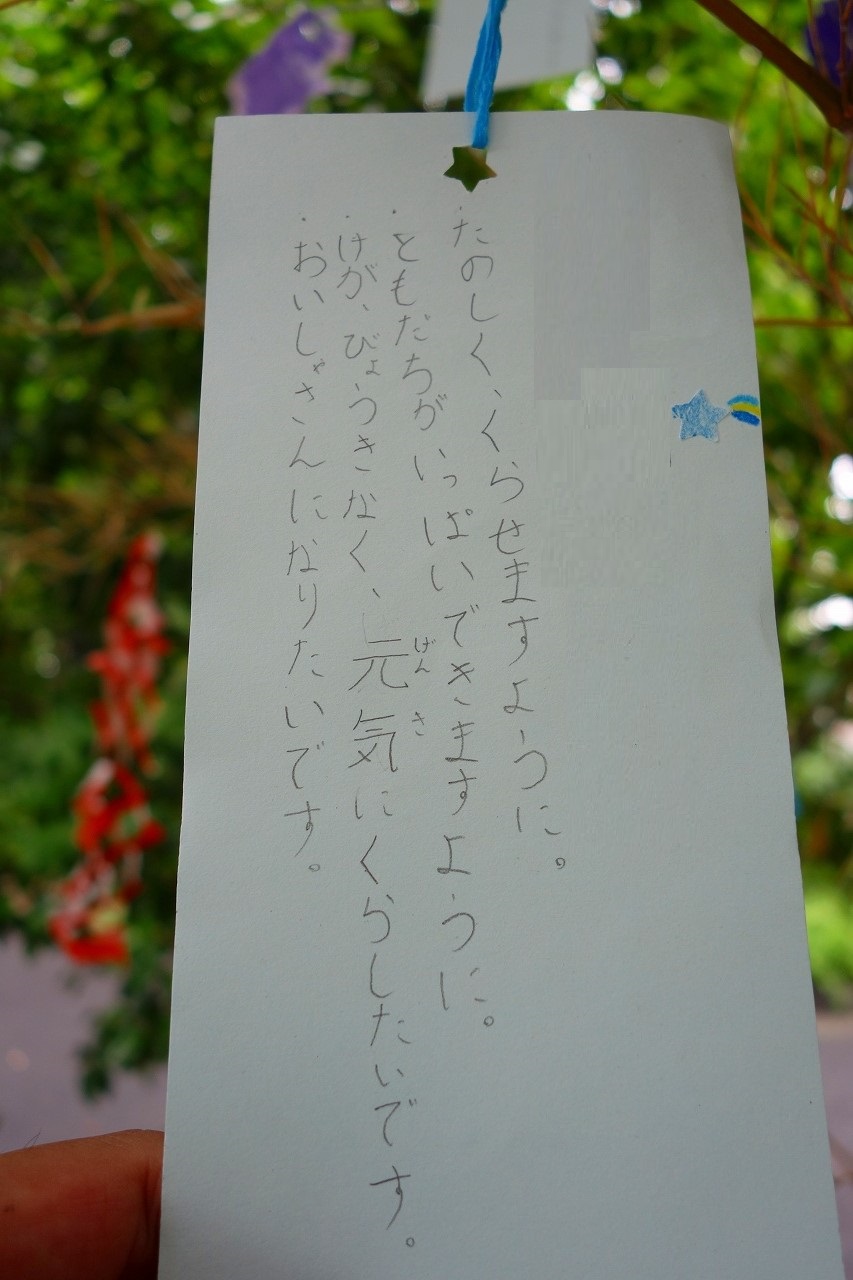 ・たのしく、くらせますように。
・ともだちがいっぱいできますように。
・けが、びょうきなく、元気にくらしたいです。
げん き
・おいしゃさんになりたいです。